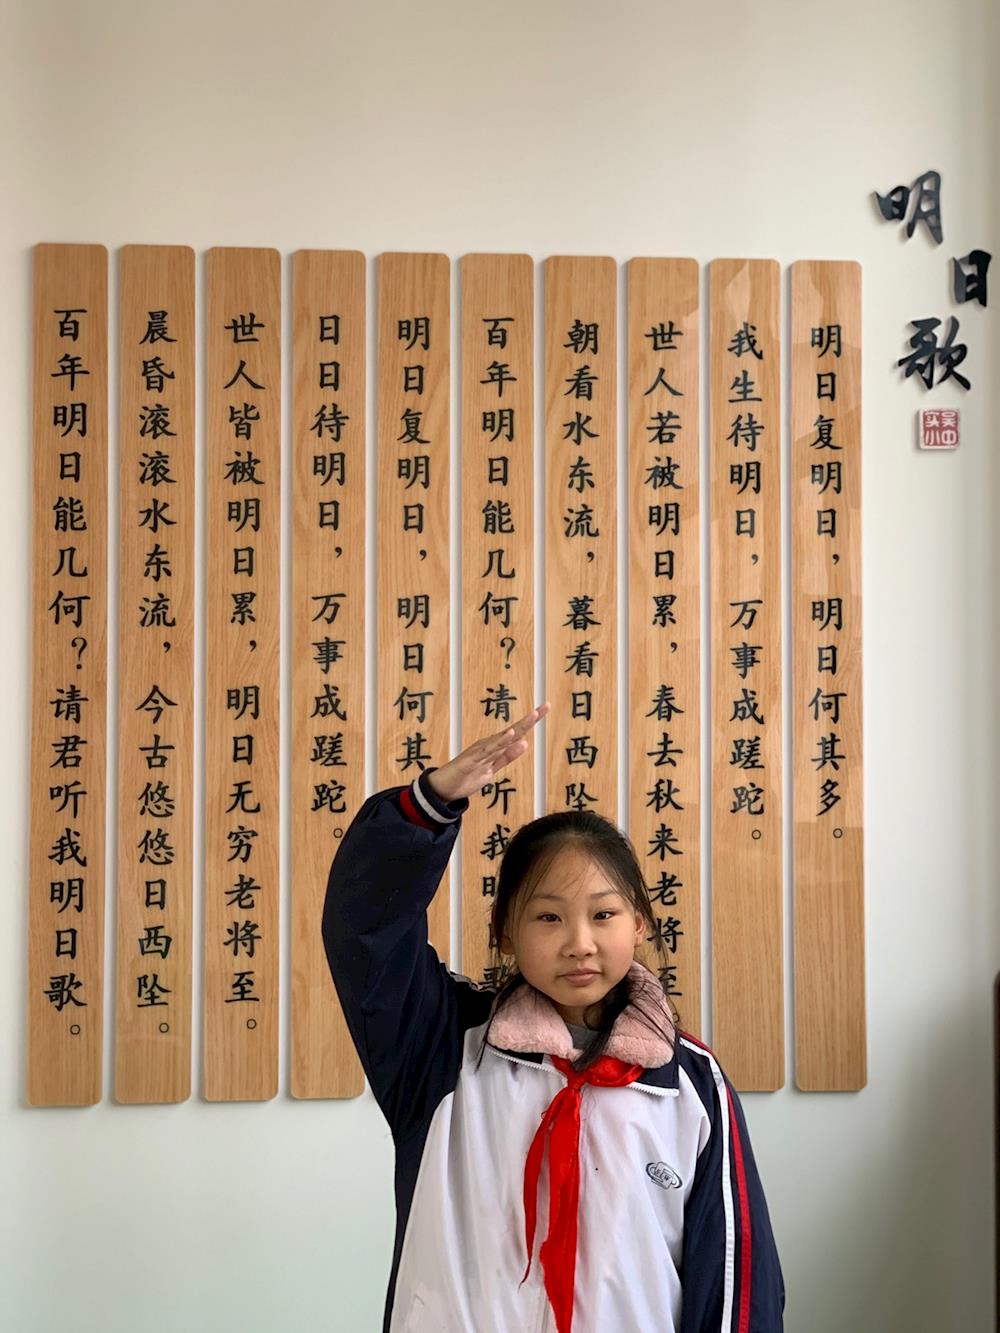 明日歌
吴中实小
明日复明日，明日何其多。
我生待明日，万事成蹉跎。
世人若被明日累，春去秋来老将至。
朝看水东流，暮看日西坠
百年明日能几何？请听我明
明日复明日，明日何其
日日待明日，万事成蹉跎。
世人皆被明日累，明日无穷老将至。
晨昏滚滚水东流，今古悠悠日西坠。
百年明日能几何？请君听我明日歌。